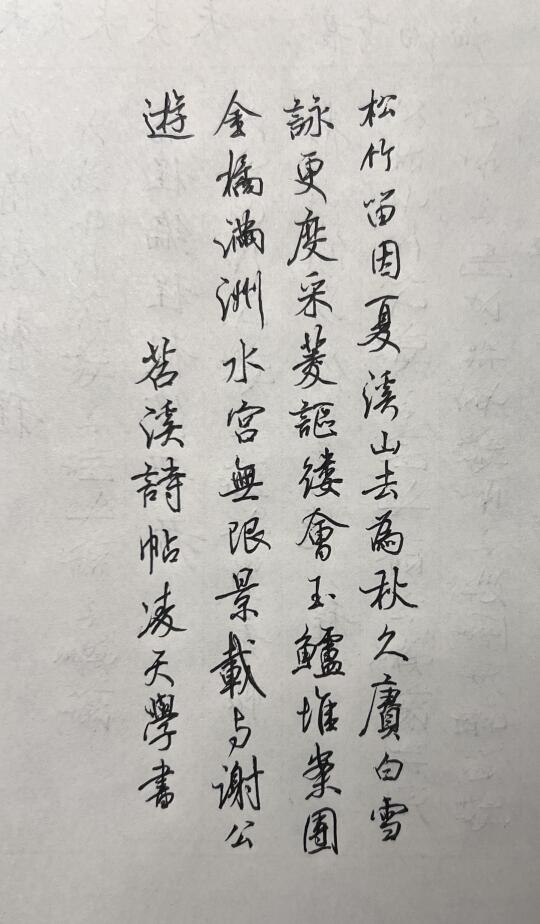 松竹留因夏溪山去為秋久賡白雪
詠更度采菱謳縷會玉鱸堆案團
金橘滿洲水宮無限景載与謝公
遊
苕溪詩帖凌天學書